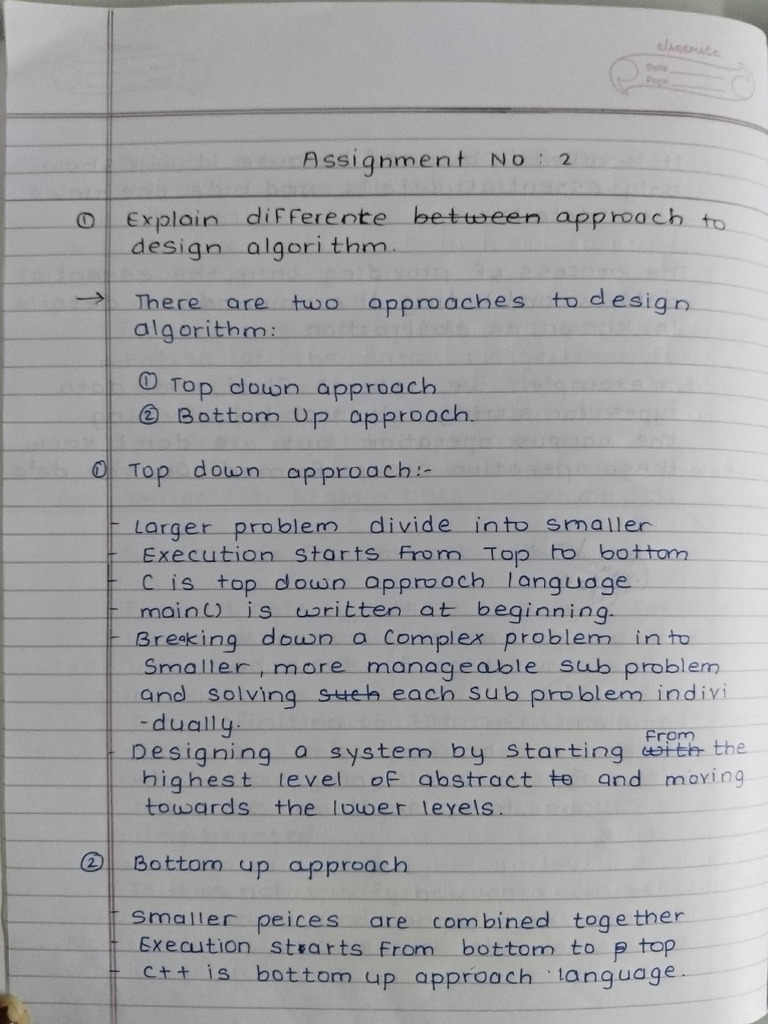 classmate
Date
Page
Assignment No : 2
① Explain differente between approach to
design algorithm.
→ There are two approaches to design
algorithm:
① Top down approach
② Bottom Up approach.
① Top down approach:-
- Larger problem divide into smaller
- Execution starts from Top to bottom
- C is top down approach language
- main() is written at beginning.
- Breaking down a complex problem into
smaller, more manageable sub problem
and solving such each sub problem indivi
-dually.
From
- Designing a system by starting with the
highest level of abstract to and moving
towards the lower levels.
② Bottom up approach
- Smaller peices are combined together
- Execution starts from bottom to p top
- C++ is bottom up approach language.